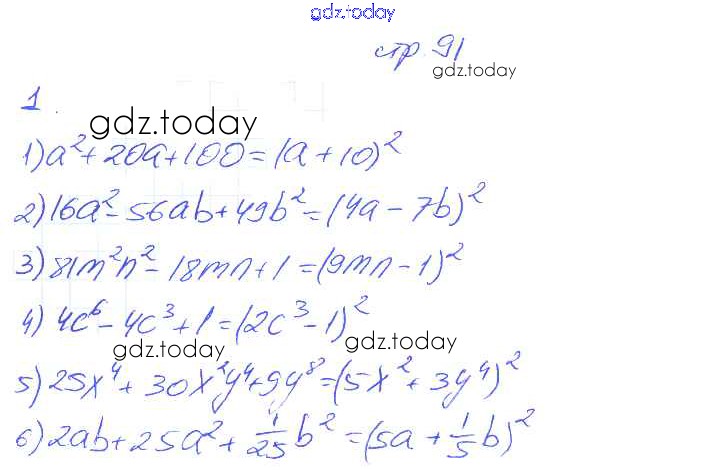 gdz.today
стр. 91
gdz.today
1.
gdz.today
1) a² + 20a + 100 = (a + 10)²
2) 16a² - 56ab + 49b² = (4a - 7b)²
3) 81m²n² - 18mn + 1 = (9mn - 1)²
4) 4c⁶ - 4c³ + 1 = (2c³ - 1)²
gdz.today gdz.today
5) 25x⁴ + 30x²y⁴ + 9y⁸ = (5x² + 3y⁴)²
6) 2ab + 25a² + 1/25 b² = (5a + 1/5 b)²
gdz.today gdz.today